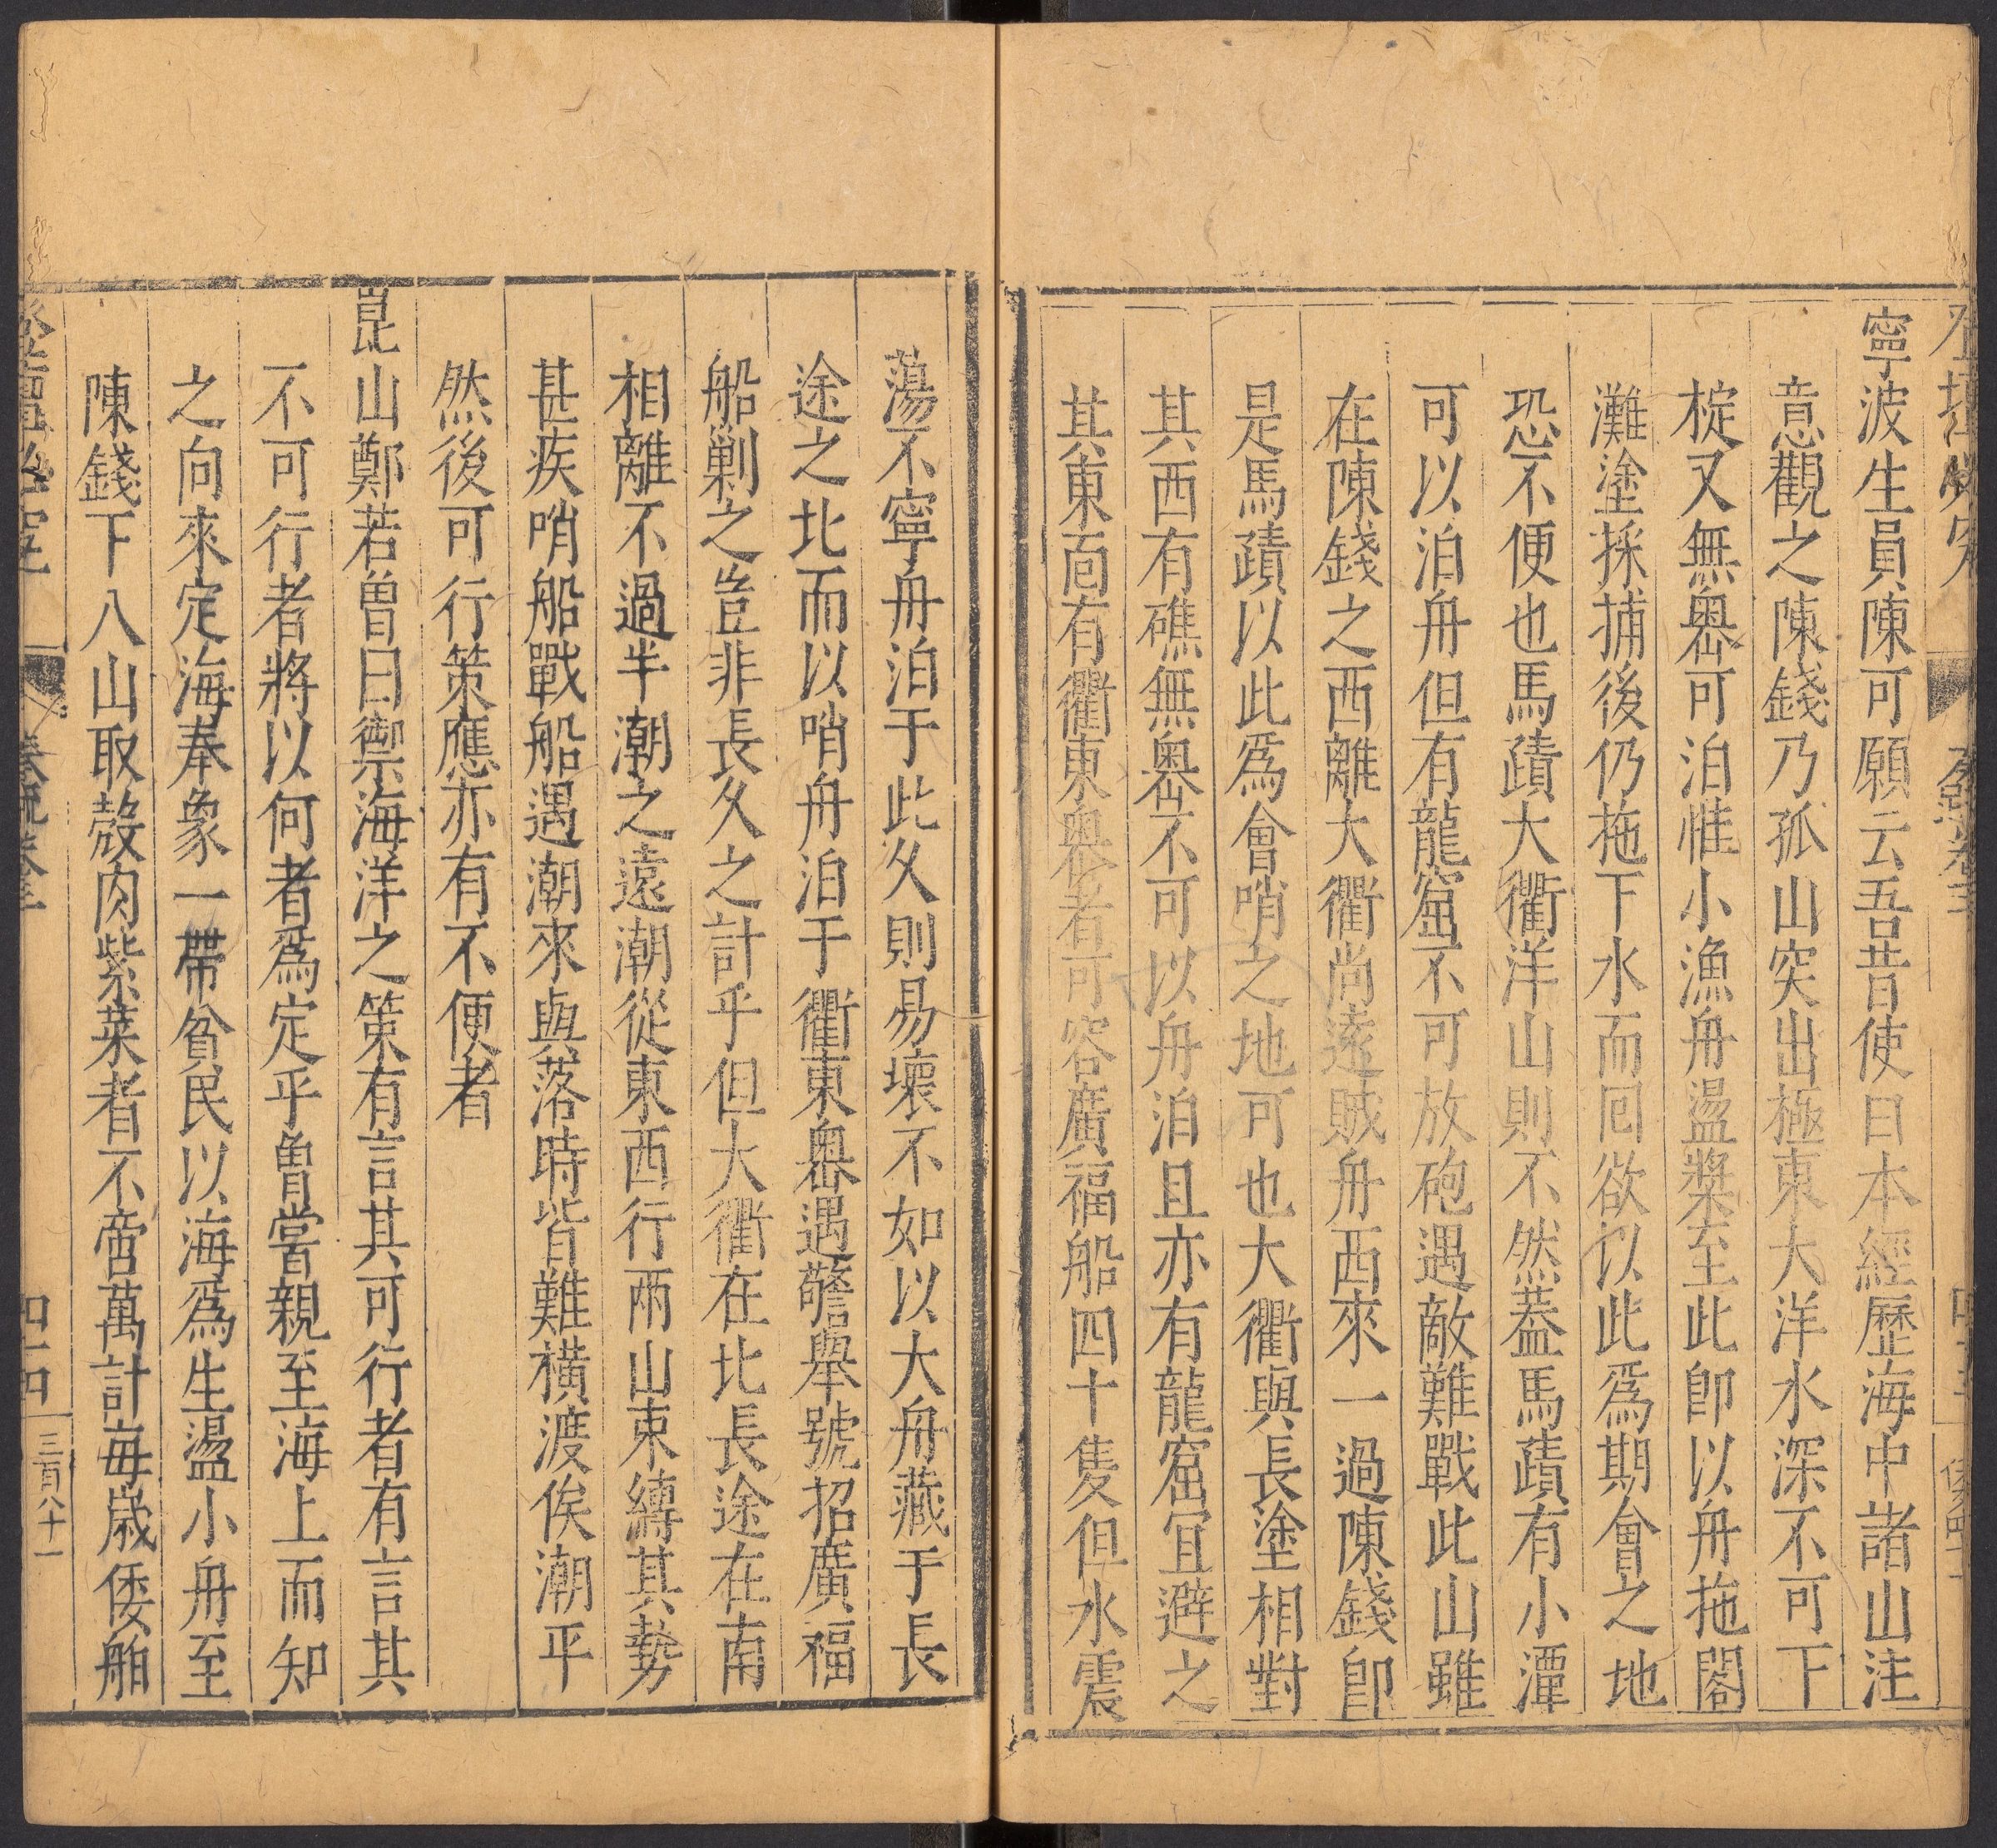 寧波生員陳可願云吾昔使日本經歷海中諸山注
意觀之陳錢乃孤山突出極東大洋水深不可下
椗又無嶴可泊惟小漁舟盪槳至此卽以舟拖閣
灘塗採捕後仍拖下水而囘欲以此爲期會之地
恐不便也馬蹟大衢洋山則不然蓋馬蹟有小潭
可以泊舟但有龍窟不可放砲遇敵難戰此山雖
在陳錢之西離大衢尚遠賊舟西來一過陳錢卽
是馬蹟以此爲會哨之地可也大衢與長塗相對
其西有礁無嶴不可以舟泊且亦有龍窟宜避之
其東面有衢東嶴者可容廣福船四十隻但水震
蕩不寧舟泊于此久則易壞不如以大舟藏于長
途之北而以哨舟泊于衢東嶴遇警舉號招廣福
船剿之豈非長久之計乎但大衢在北長途在南
相離不過半潮之遠潮從東西行兩山束縛其勢
甚疾哨船戰船遇潮來與落時皆難橫渡俟潮平
然後可行策應亦有不便者
崑山鄭若曾曰禦海洋之策有言其可行者有言其
不可行者將以何者爲定乎曾嘗親至海上而知
之向來定海奉象一帶貧民以海爲生盪小舟至
陳錢下八山取殼肉紫菜者不啻萬計每歲倭舶
四十四
三百八十一